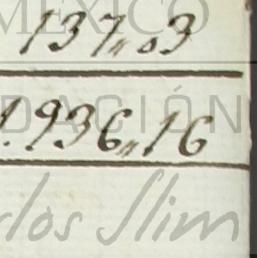 MEXICO
137,,03
1.936,,16
DACIÓN
los Slim